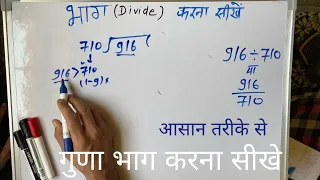 भाग (Divide) करना सीखें
710 ) 916 (
916 > 710
(1-9)x
916 ÷ 710
या
916
710
आसान तरीके से
गुणा भाग करना सीखे